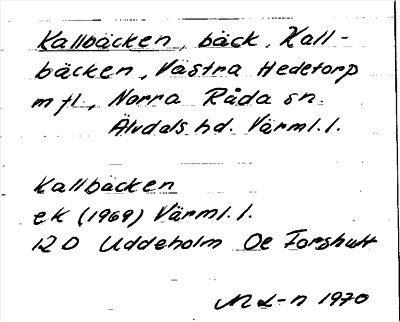 Kallbäcken, bäck, Kall-
bäcken, Västra Hedetorp
m fl., Norra Råda sn.
Älvdals hd. Värml. l.
Kallbäcken
ek (1969) Värml. l.
12 D Uddeholm Oe Forshult
M L-n 1970